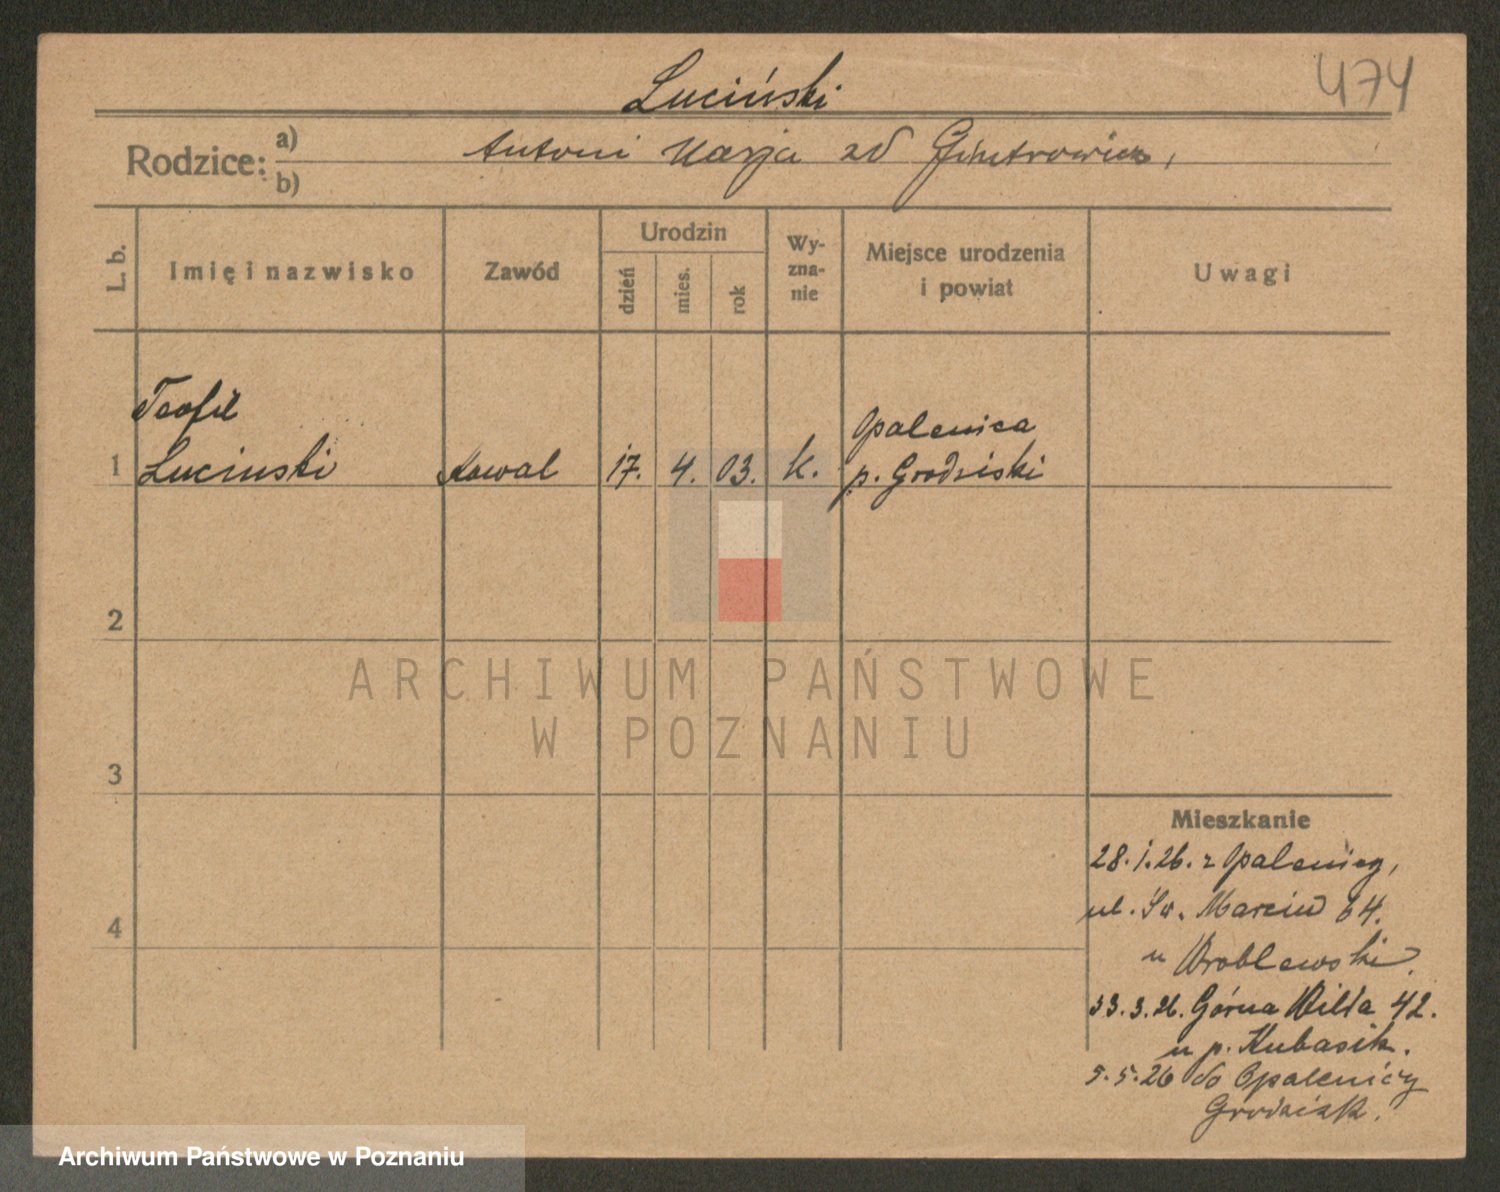 474
Luciński
Rodzice: a) Antoni Marja zd
b)
L. b.
Imię i nazwisko
Zawód
Urodzin
dzień
mies.
rok
Wy-
zna-
nie
Miejsce urodzenia
i powiat
Uwagi
Teofil
1 Lucinski Kowal 17. 4. 03. k. Opalenica
p. Grodziski
2
3
4
Mieszkanie
28.1.26. z Opalenicy,
ul. Św. Marcin 64.
u Wroblewski.
3.26. Górna Wilda 42.
u p. Kubasik.
5.5.26 do Opalenicy
Grodzisk.
ARCHIWUM PAŃSTWOWE
W POZNANIU
Archiwum Państwowe w Poznaniu